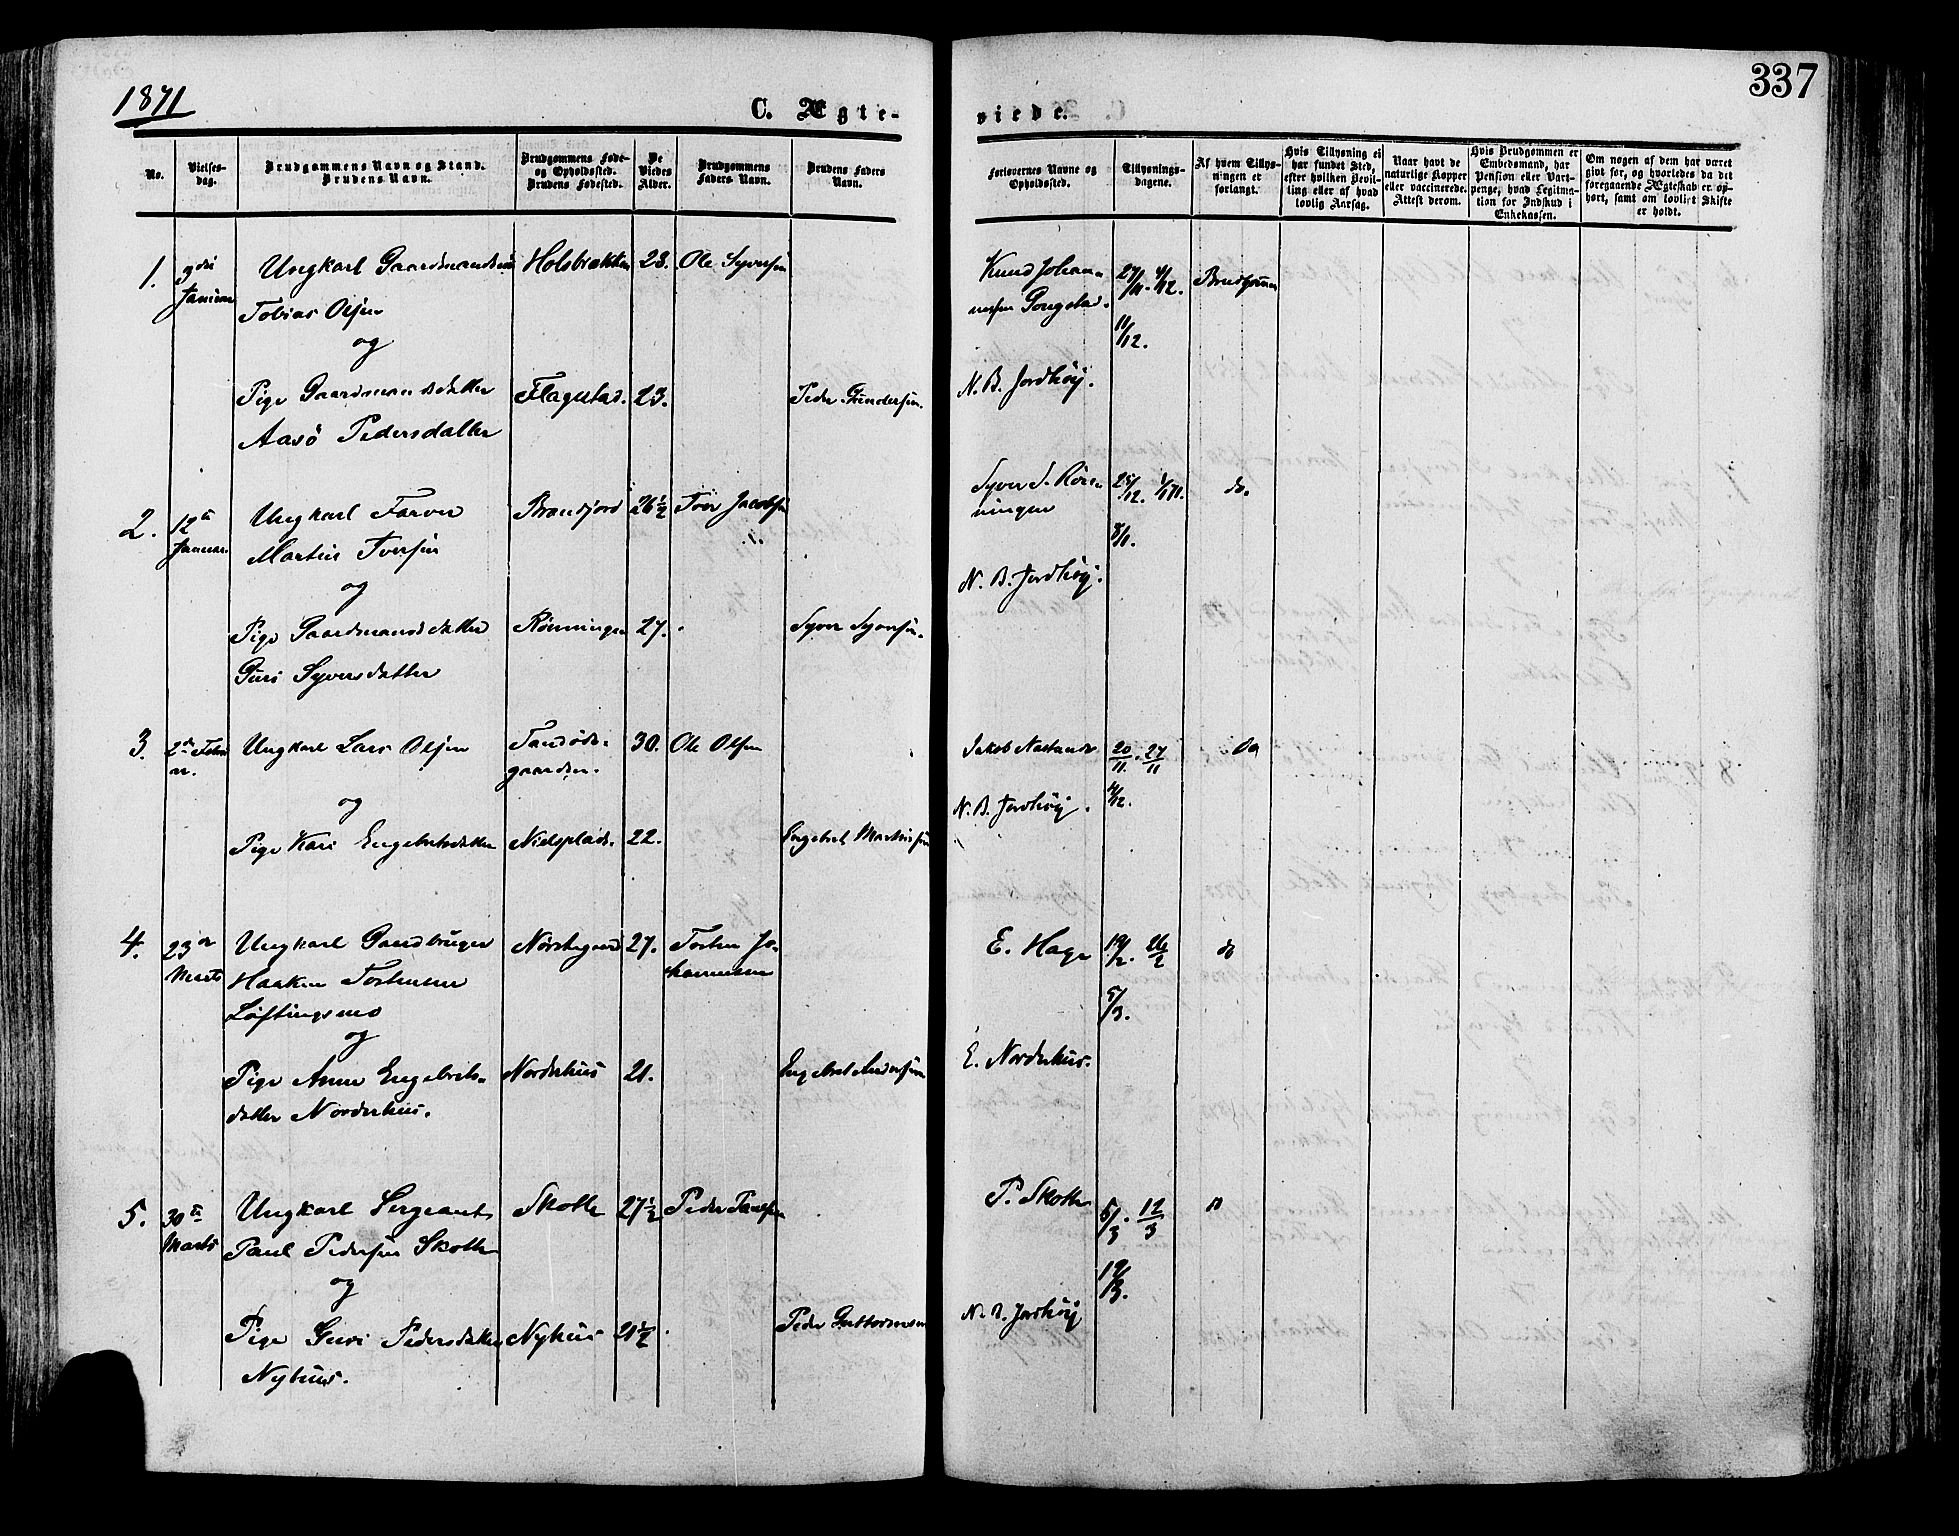 1871
337
C. Ægte-
viede.
No.
Vielses-
dag.
Brudgommens Navn og Stand.
Brudens Navn.
Brudgommens Føde-
og Opholdssted.
Brudens Fødested.
De
Viedes
Alder.
Brudgommens
Faders Navn.
Brudens Faders
Navn.
Forlovernes Navne og
Opholdssted.
Tillysnings-
dagene.
Af hvem Tillys-
ningen er
forlangt.
Hvis Tillysning ei
har fundet Sted,
efter hvilken Bevil-
ling eller af hvad
lovlig Aarsag.
Naar havt de
naturlige Kopper
eller vaccinerede.
Attest derom.
Hvis Brudgommen er
Embedsmand, har
Pension eller Vart-
penge, hvad Legitima-
tion for Indskud i
Enkekassen.
Om nogen af dem har været
gift før, og hvorledes da dit
foregaaende Ægteskab er op-
hørt, samt om lovligt Skifte
er holdt.
1.
Ungkarl Gaardmandssøn
Tobias Olsen
og
Pige Gaardmandsdatter
Aasö Pedersdatter
Flagstad.
28.
23.
Ole Syversen
Peder Gundersen.
Knud Johan-
nessen
27/11. 4/12.
11/12.
N. B. Jordhöj.
2.
12te
Januar.
Ungkarl Farver
Martin Toersen
og
Pige Gaardmandsdatter
Guri Syversdatter
Brandfjord
Rönningen
26 1/2
27.
Toer Jacobsen
Syver Syversen.
Syver S. Rön-
ningen
25/12. 1/1 71.
8/1.
do.
N. B. Jordhöj.
3.
2den Febru
ar.
Ungkarl Lars Olsen
og
Pige Kari Engebretsdatter
gaarden.
Nielsplads.
30.
22.
Ole Olsen
Engebret Martinsen
20/11. 27/11
4/12.
do
N. B. Jordhöj.
4.
23de
Marts
Ungkarl Gaardbruger
Haaken Torstensen
Löftingsmo
og
Pige Anne Engebrets-
datter Norderhus.
Norderhus
27.
21.
Torsten Jo-
hannessen
Engebret Andersen
E. Hage
19/2. 26/2
5/3.
do
E. Norderhus.
5.
30te
Marts
Ungkarl Sergeant
Paul Pedersen Skotte
og
Pige Guri Pedersdatter
Nyhus.
Skotte
Nyhus
27 1/2
21 1/2
Peder Paulsen
Peder Guttormsen
P. Skotte
5/3. 12/3
19/3.
N. B. Jordhöj